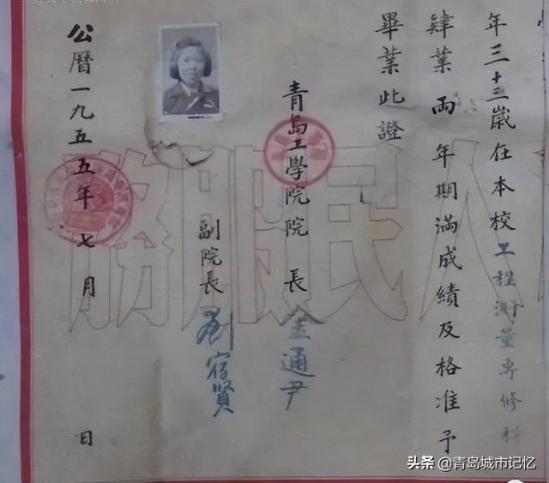 年三十三歲在本校工程測量專修科
肄業兩年期滿成績及格准予
畢業此證
青島工學院院長金通尹
副院長劉宿賢
公曆一九五五年七月 日
人民服務
头条 @青岛城市记忆